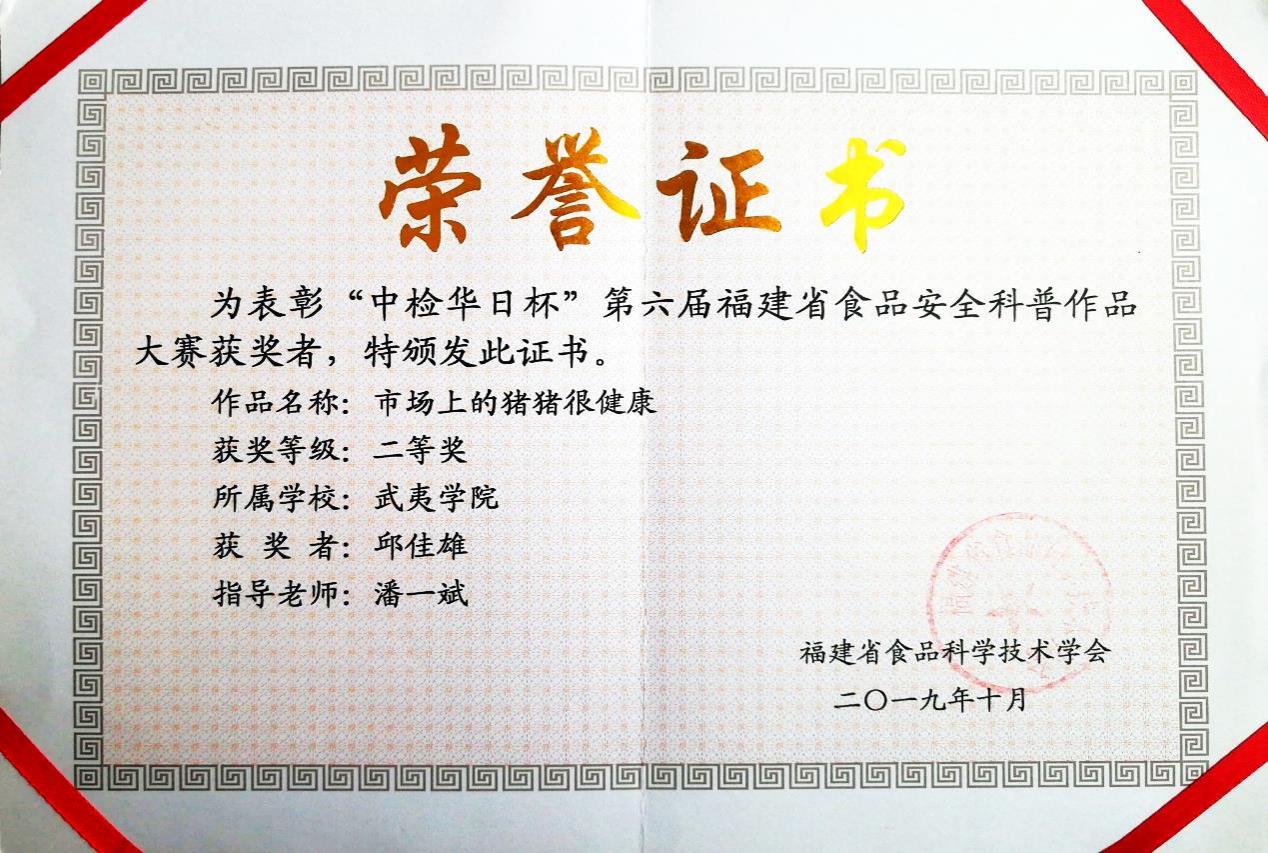 荣誉证书
为表彰“中检华日杯”第六届福建省食品安全科普作品
大赛获奖者，特颁发此证书。
作品名称：市场上的猪猪很健康
获奖等级：二等奖
所属学校：武夷学院
获 奖 者：邱佳雄
指导老师：潘一斌
福建省食品科学技术学会
二〇一九年十月